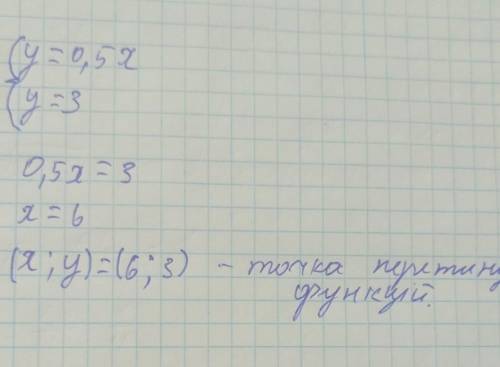 y = 0,5x
y = 3
0,5x = 3
x = 6
(x ; y) = (6 ; 3) - точка перетину
функцій.